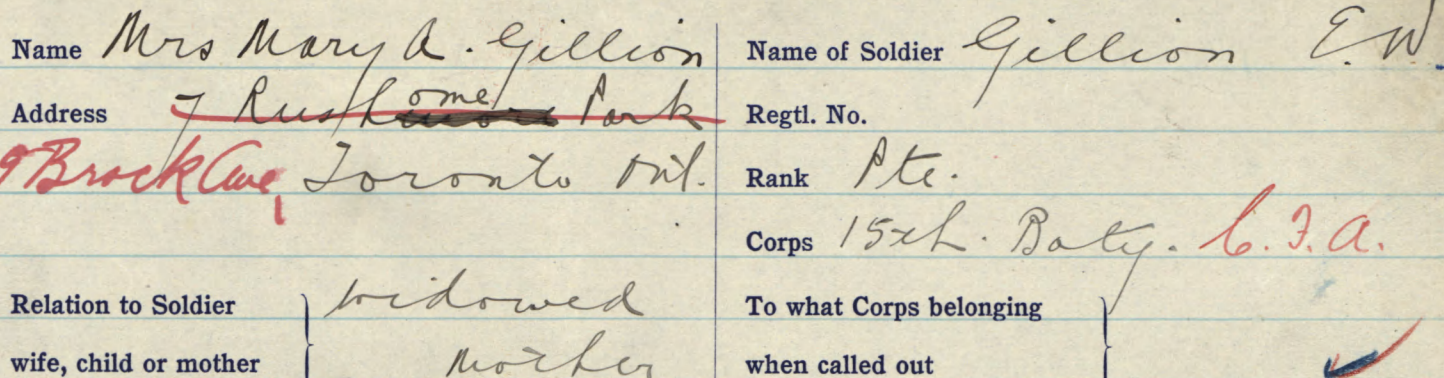 Name Mrs Mary A. Gillion
Address 7 Rushome Park
Brock Ave, Toronto Ont.
Relation to Soldier
wife, child or mother
widowed
mother
Name of Soldier Gillion E.W.
Regtl. No.
Rank Pte.
Corps 15th. Baty. C.F.A.
To what Corps belonging
when called out